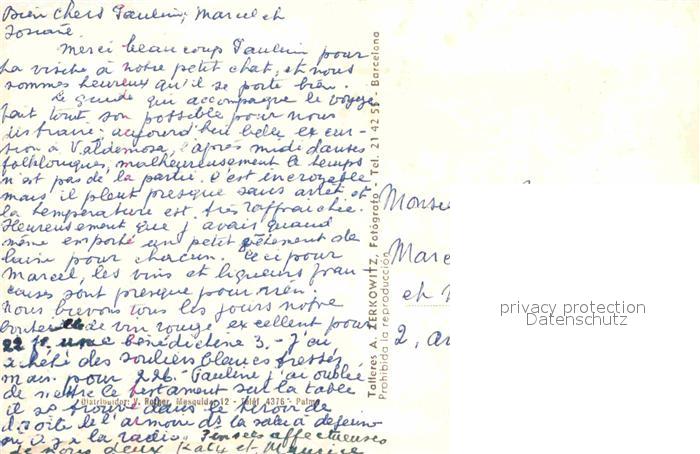 Bien chers Pauline, Marcel et
Josiane.
Merci beaucoup Pauline pour
ta visite à notre petit chat, et nous
sommes heureux qu'il se porte bien.
Le guide qui accompagne le voyage
fait tout son possible pour nous
distraire; aujourd'hui belle excur-
sion à Valdemosa, l'après midi danses
folkloriques, malheureusement le temps
n'est pas de la partie. C'est incroyable
mais il pleut presque sans arrêt et
la température est très raffraichie.
Heureusement que j'avais quand
même emporté un petit vêtement de
laine pour chacun. Ceci pour
Marcel, les vins et liqueurs fran-
çaises sont presque pour rien.
Nous buvons tous les jours notre
bouteille de vin rouge excellent pour
22 f. une bénédictine 3.- J'ai
acheté des souliers blancs tressés
main pour 226.- Pauline j'ai oublié
de mettre le testament sur la table
il se trouve dans le tiroir de
droite de l'armoire de la salle à déjeuner
où il y a la radio. Pensées affectueuses
de nous deux Katy et Maurice
Distribuidor: V. Rotger, Mesquida, 12 - Teléf. 4376 - Palma
Talleres A. ZERKOWITZ, Fotógrafo - Tel. 21 42 55 - Barcelona
Prohibida la reproducción
Monsie
Marc
et
2, a
privacy protection
Datenschutz